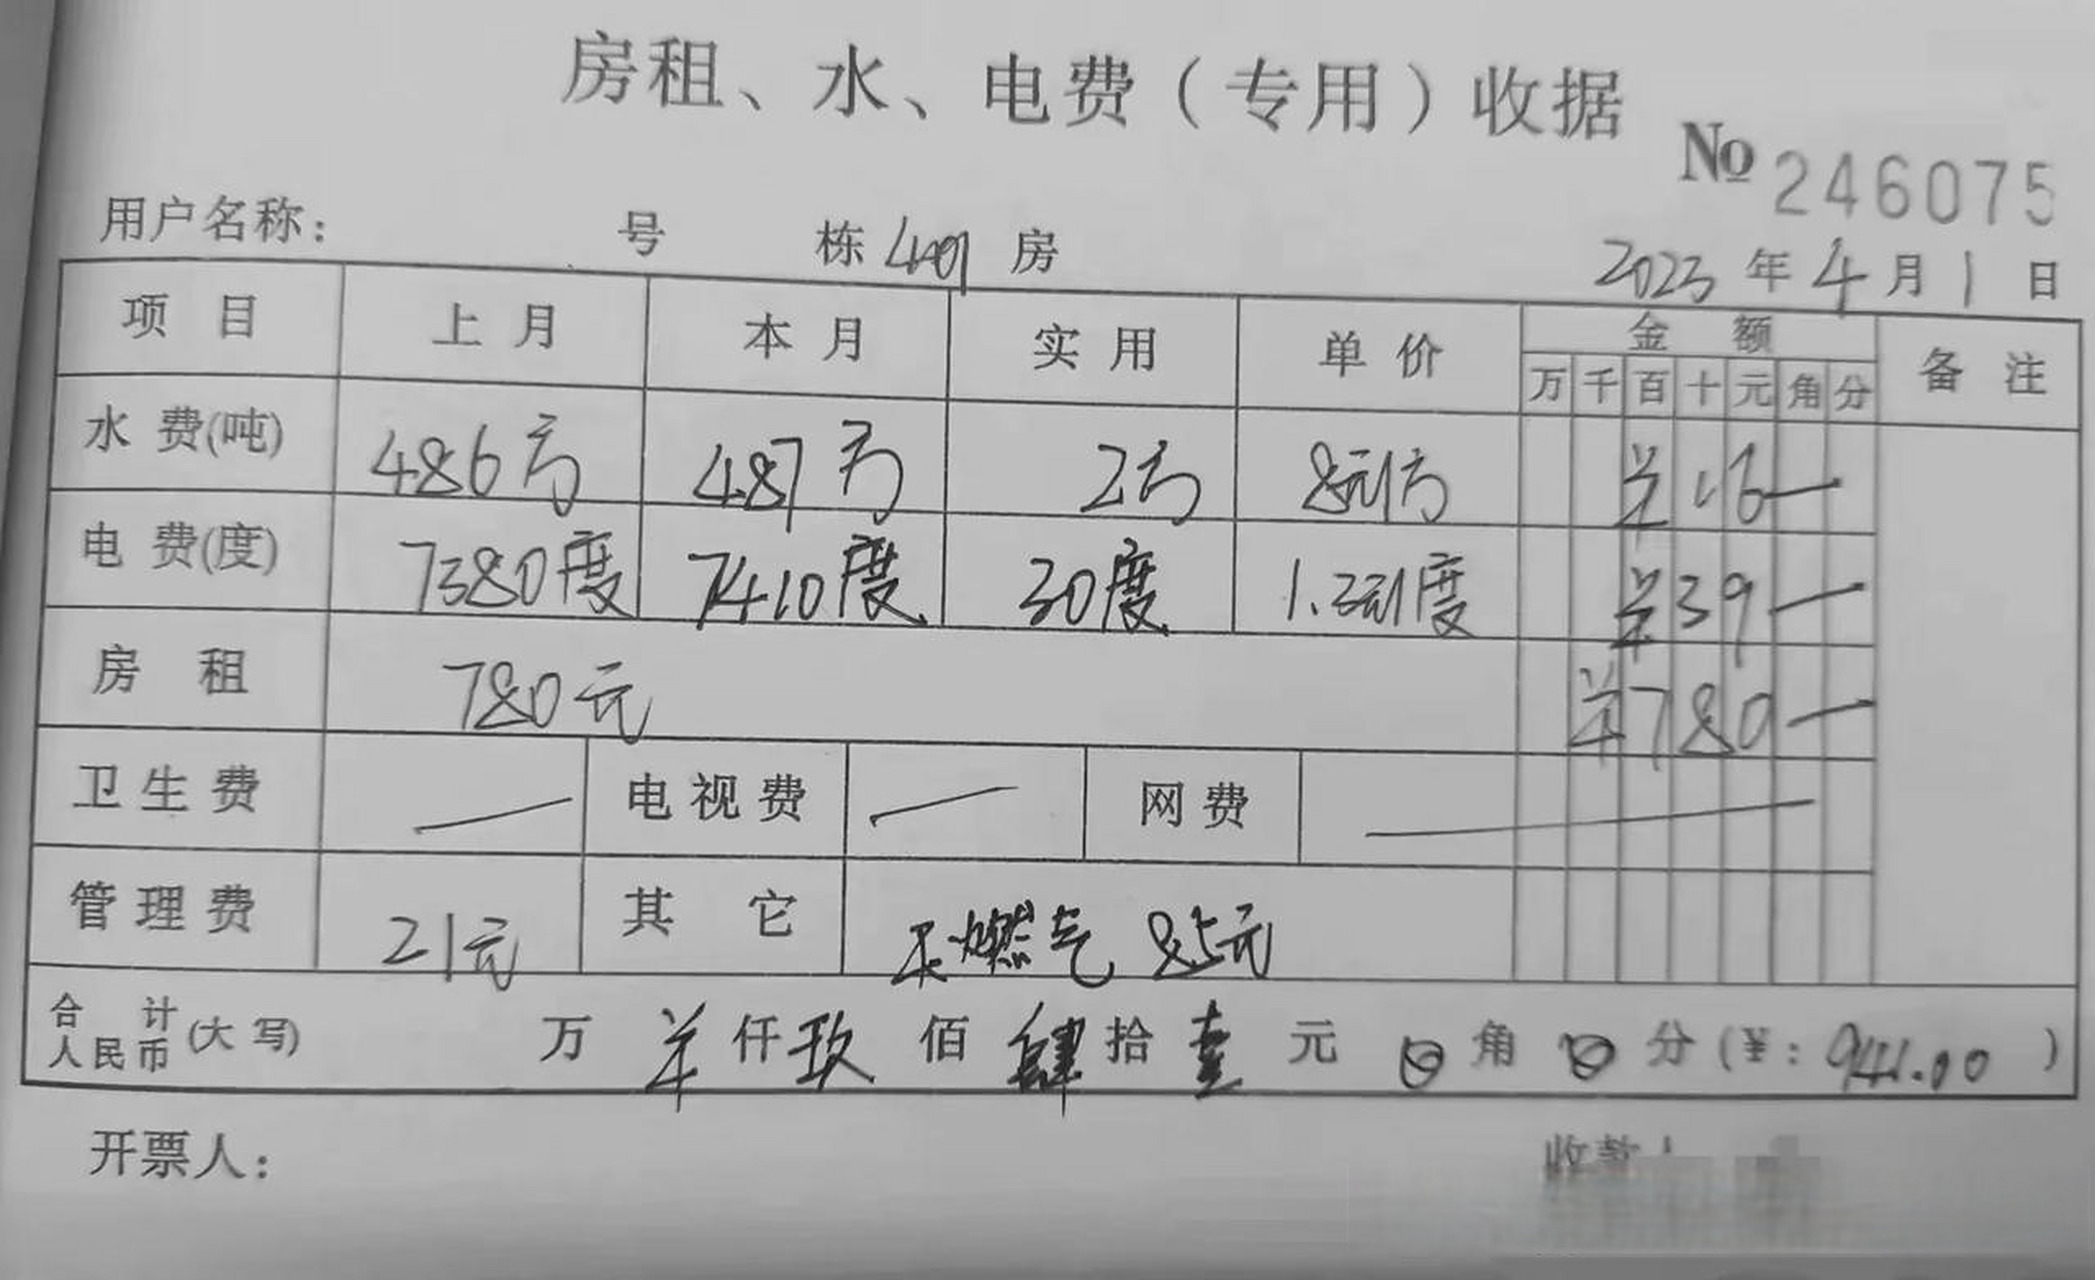 房租、水、电费（专用）收据
№ 246075
用户名称： 号 栋 409 房
2023 年 4 月 1 日
项目 上月 本月 实用 单价 金额 备注
万 千 百 十 元 角 分
水费(吨) 486方 487方 2方 8元/方 ¥16—
电费(度) 7380度 7410度 30度 1.3元/度 ¥39—
房租 780元 ¥780—
卫生费 — 电视费 — 网费 —
管理费 21元 其它 天燃气 85元
合计人民币(大写) 万 ¥ 仟 玖 佰 肆 拾 壹 元 0 角 0 分 (¥: 941.00)
开票人：
收款